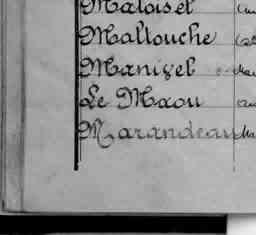 Maloisel
Mallouche
Manigel
Le Maou
Marandeau